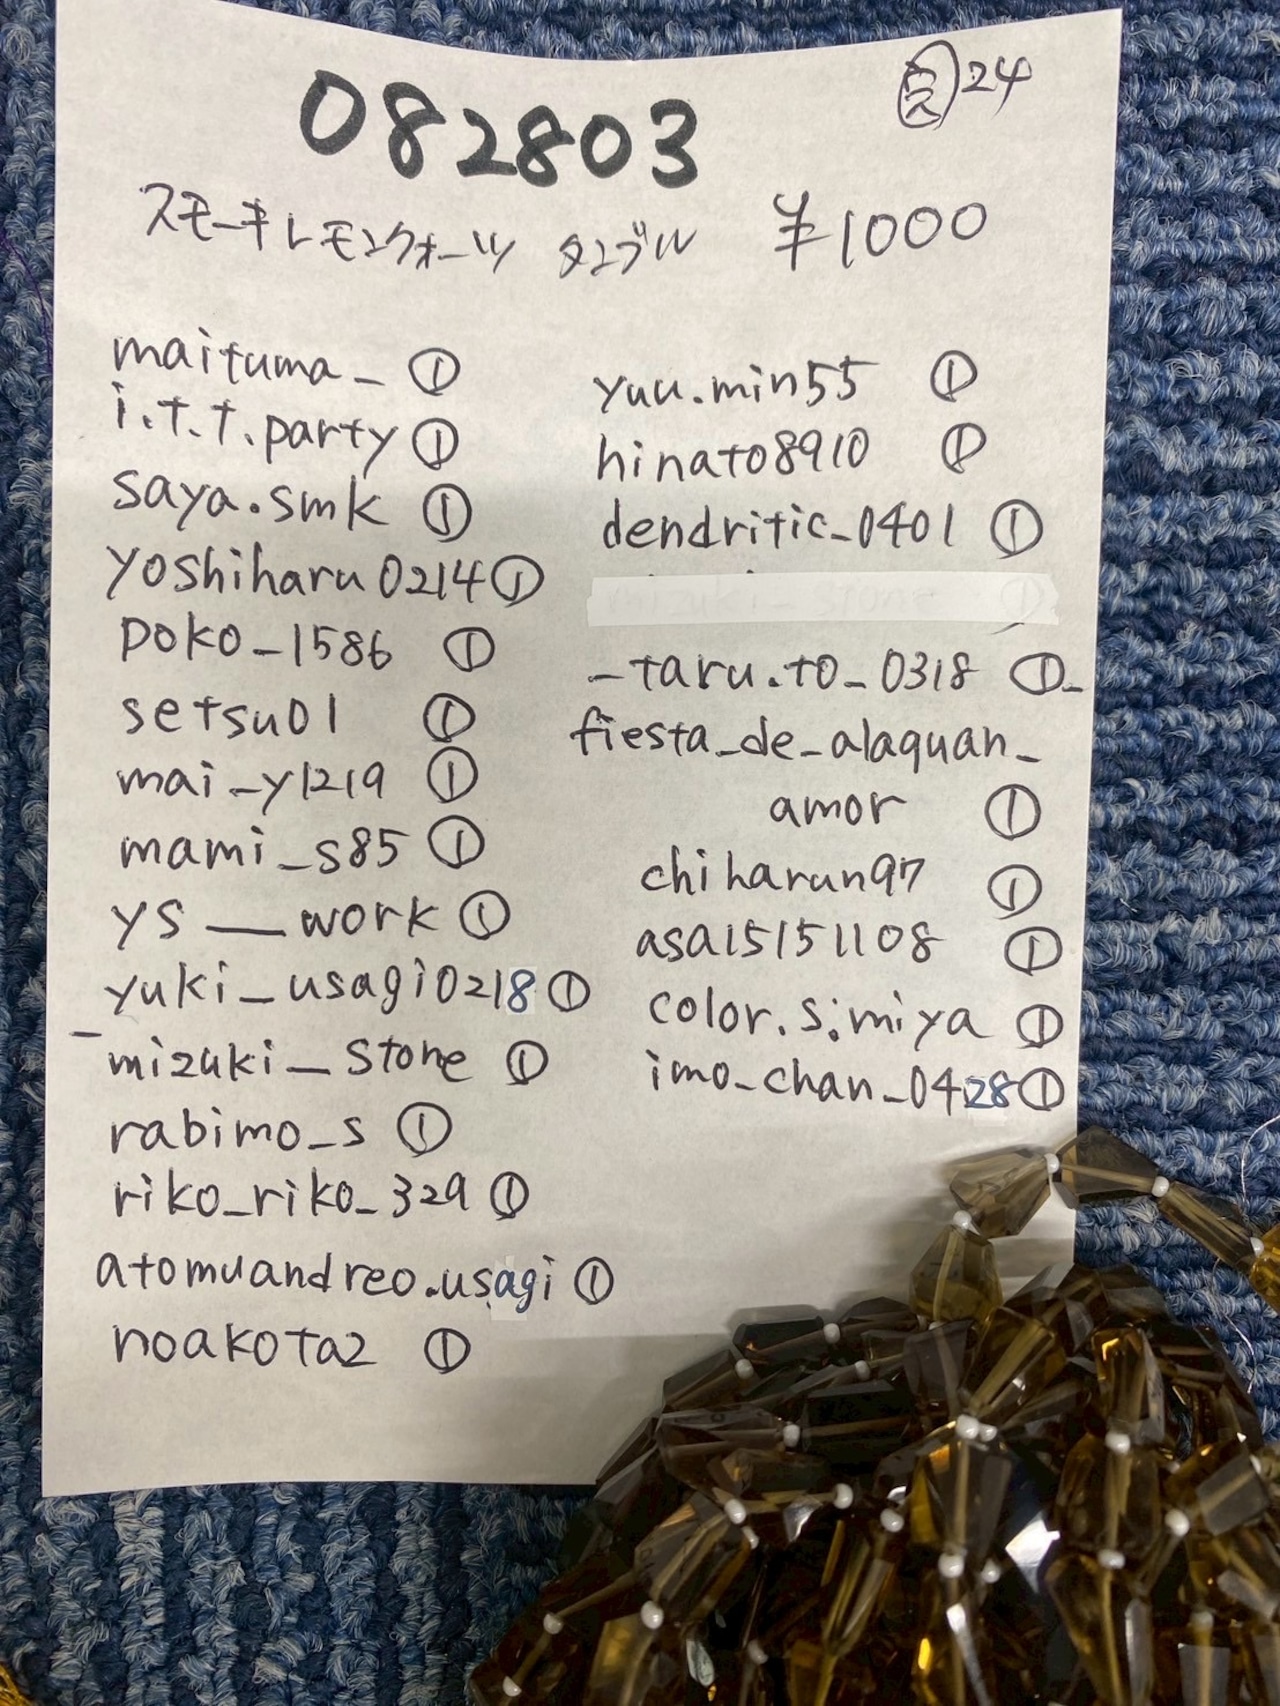 082803
24
スモーキレモンクォーツ タンブル ¥1000
maituma_ ①
i.t.t.party ①
saya.smk ①
yoshiharu0214 ①
poko_1586 ①
setsu01 ①
mai_y1219 ①
mami_s85 ①
ys__work ①
yuki_usagi0218 ①
_mizuki_stone ①
rabimo_s ①
riko_riko_329 ①
atomuandreo.usagi ①
noakota2 ①
yuu.min55 ①
hinato8910 ①
dendritic_0401 ①
_taru.to_0318 ①_
fiesta_de_alaquan_
amor ①
chiharun97 ①
asa15151108 ①
color.s.miya ①
imo_chan_0428 ①